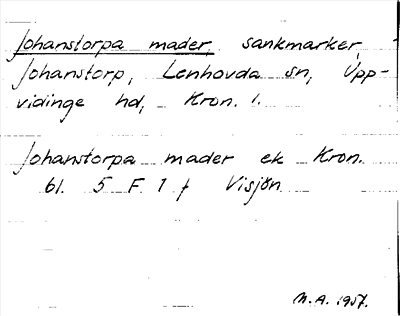 Johanstorpa mader, sankmarker,
Johanstorp, Lenhovda sn, Upp-
vidinge hd, Kron. l.
Johanstorpa mader ek Kron.
bl. 5 F 1 f Visjön
M.A. 1957.